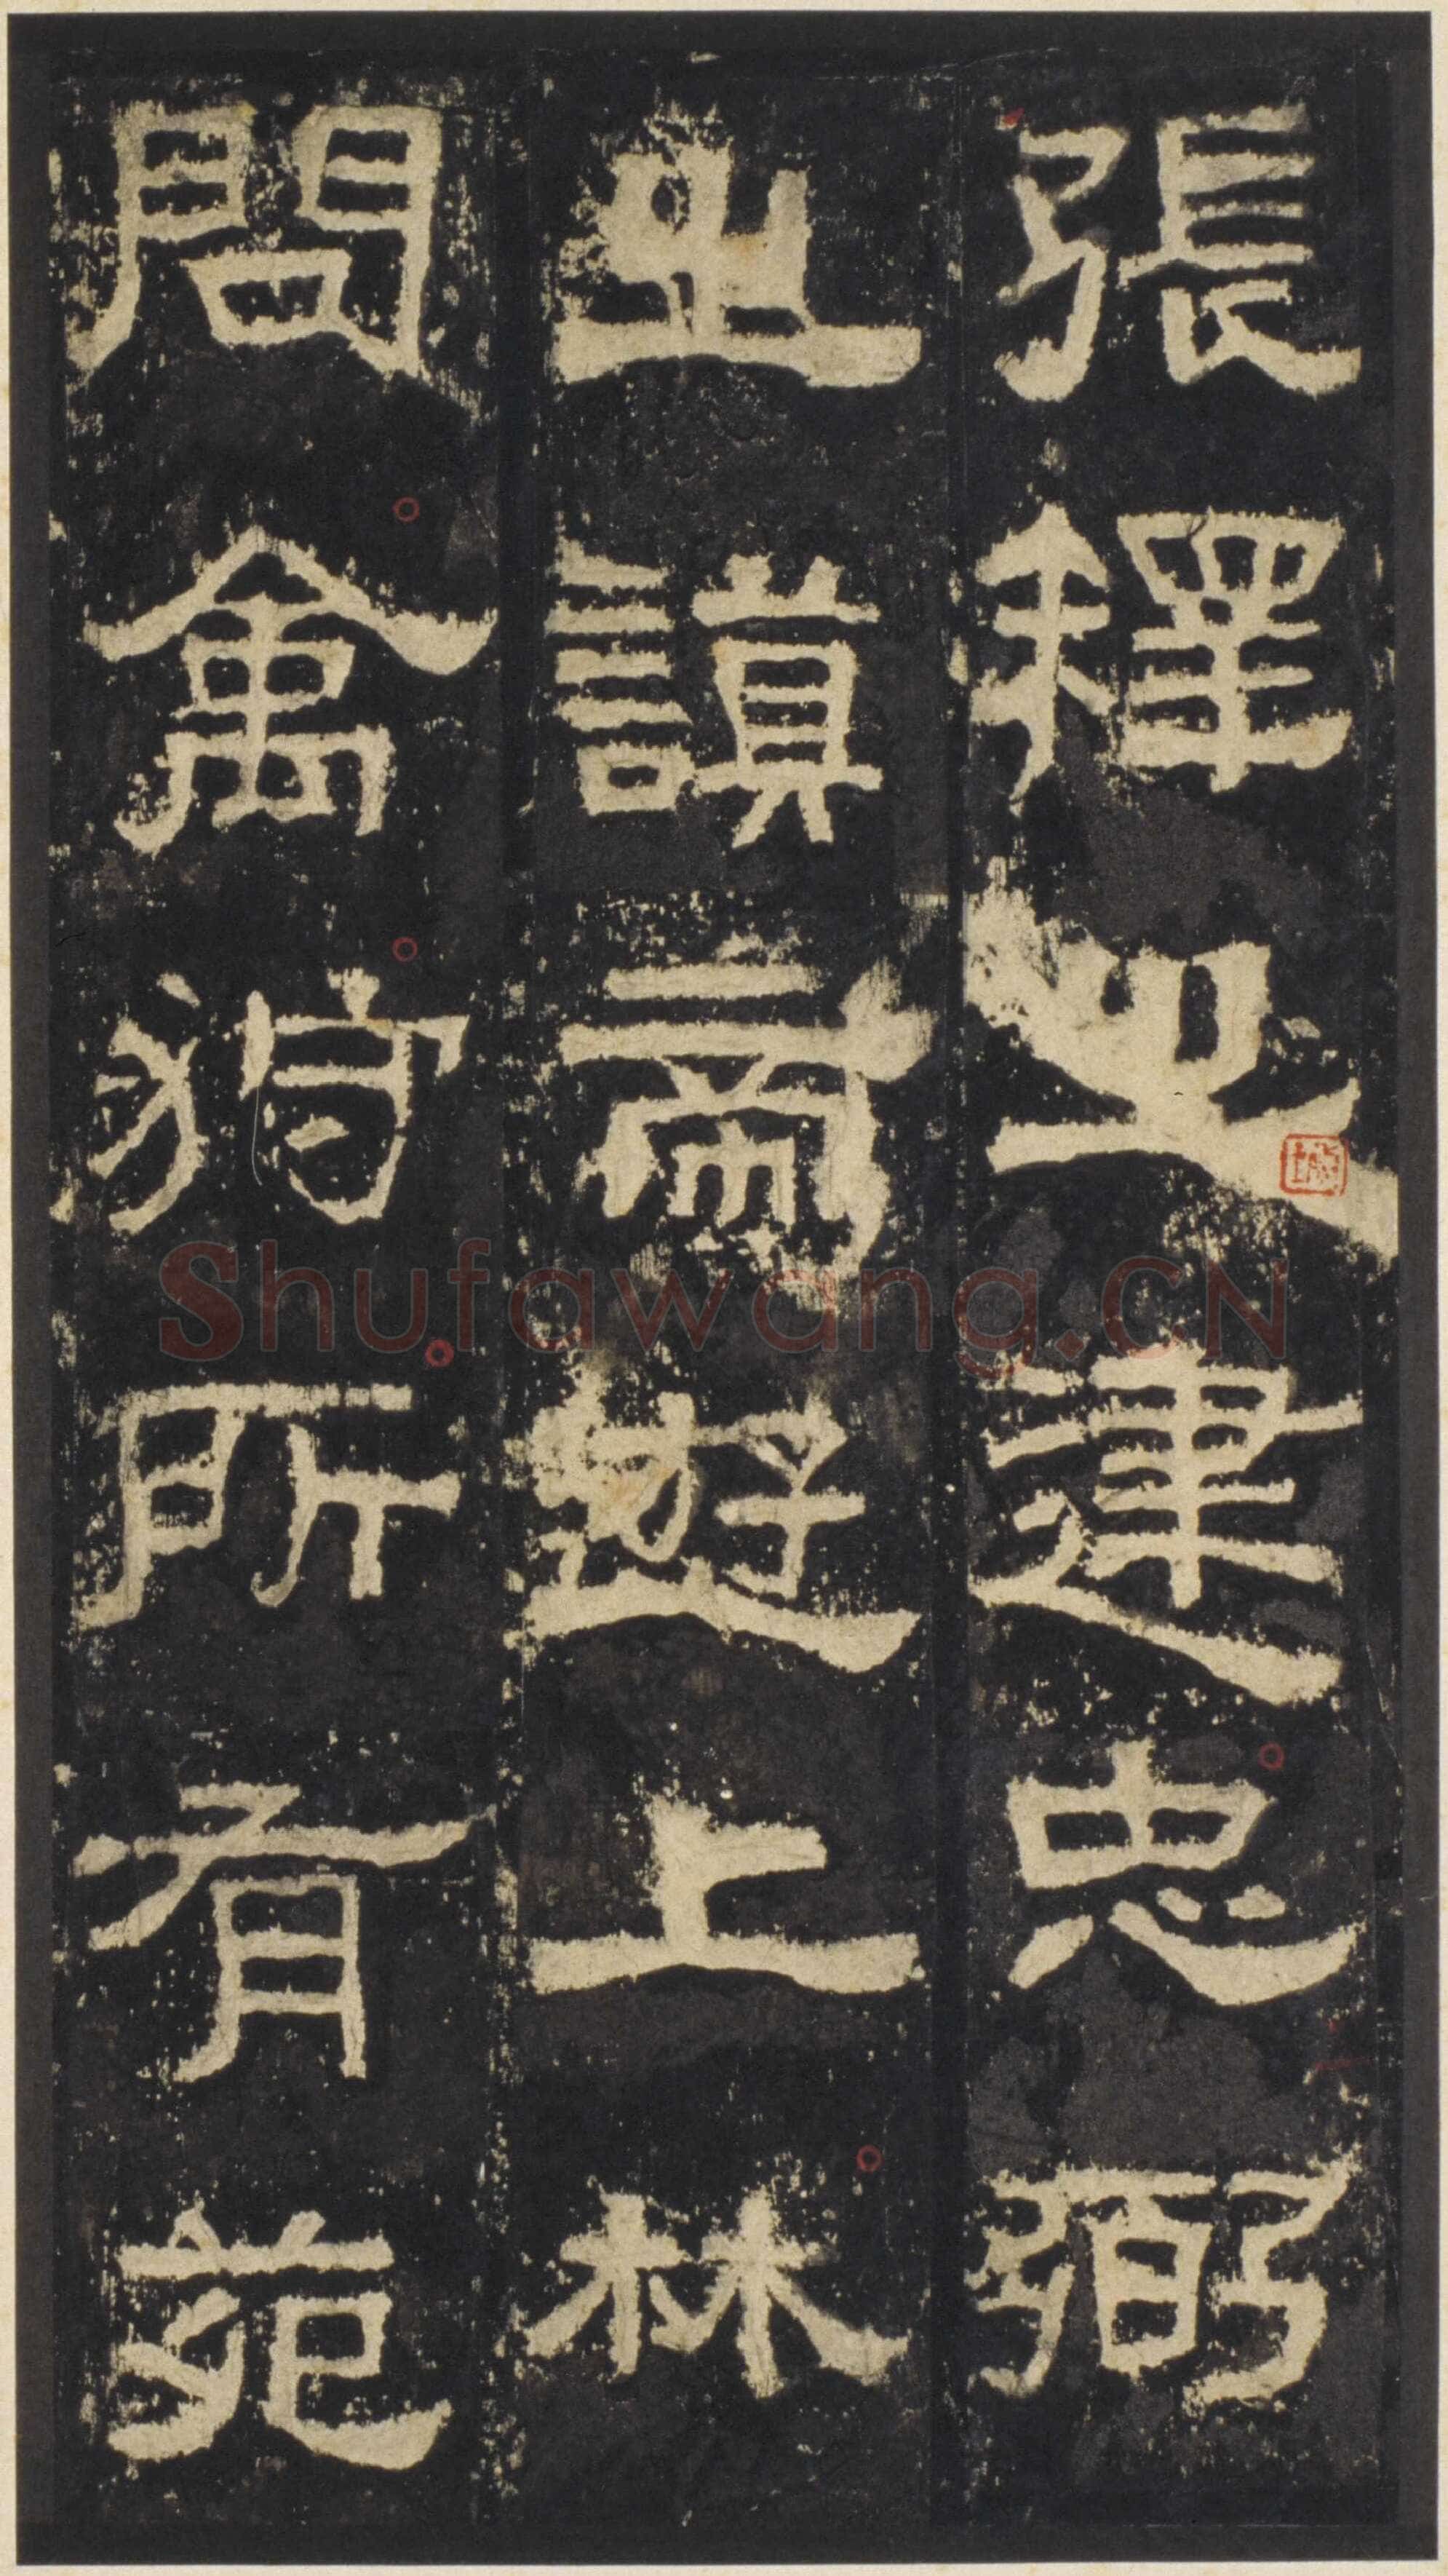 張釋之建忠弼
之謨帝遊上林
問禽狩所有苑
Shufawang.CN